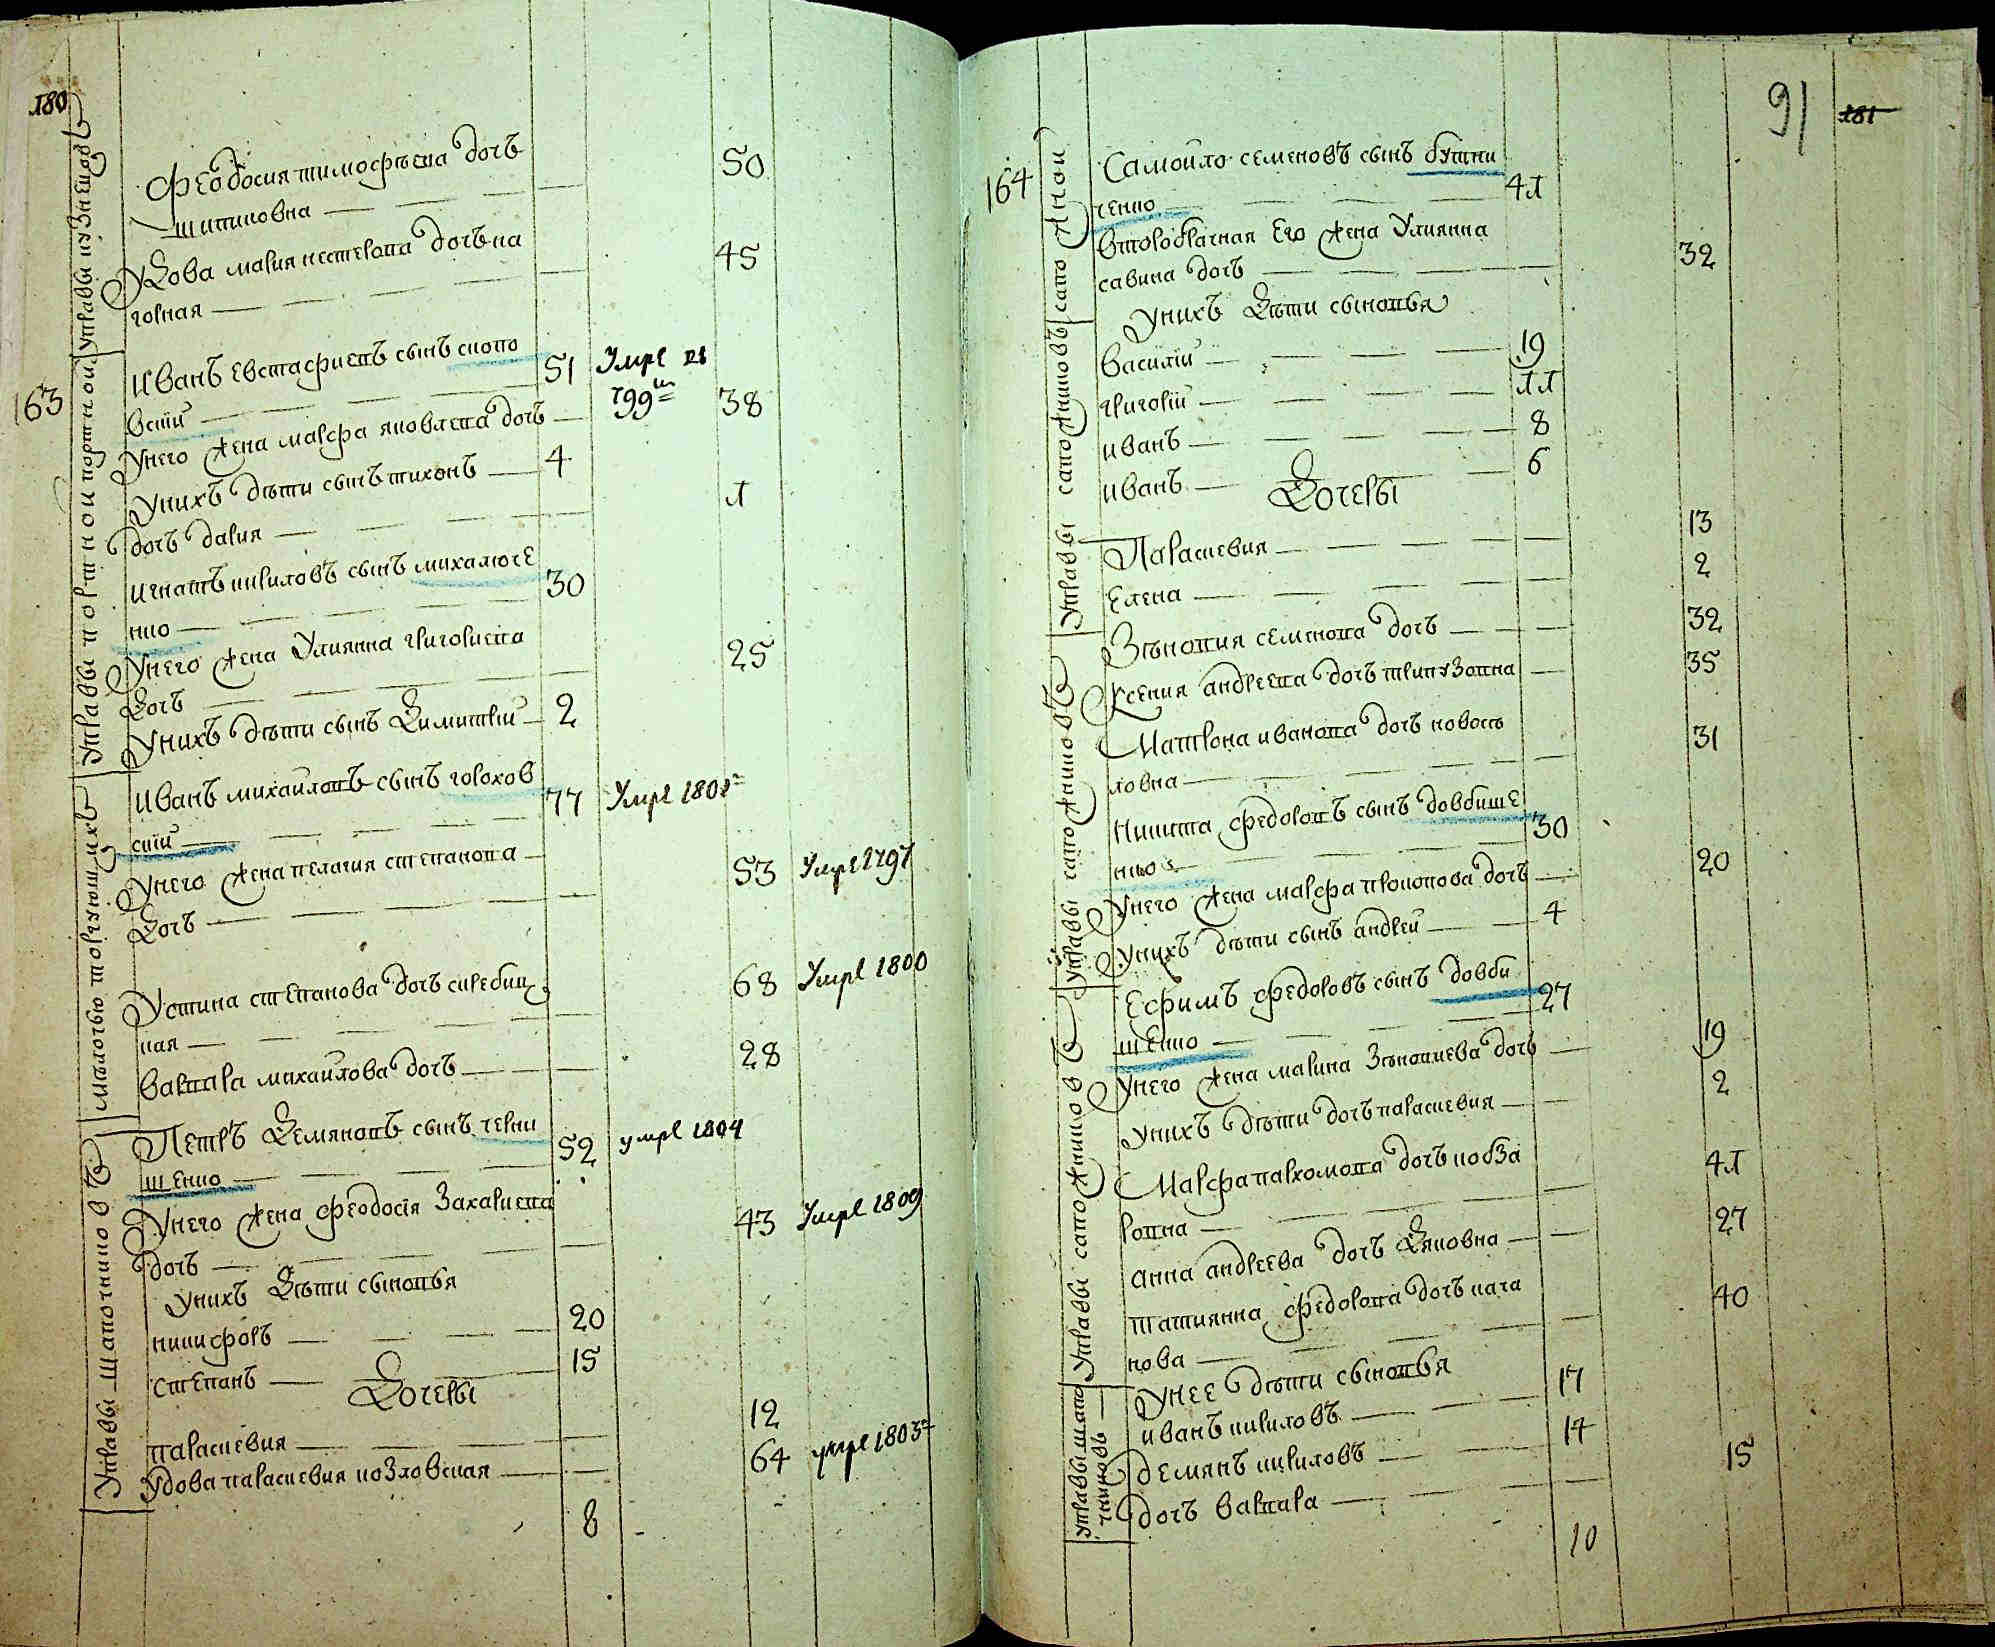 180
управы кузнецов
Феодосия тимофѣева дочь
шипиловна 50
Удова мария нестерова дочь на
горная 45
163
управы портной портной
Иванъ евстафиевъ сынъ сноло
вскій 51 Умре въ 799м
Унего жена марфа яковлева дочь 38
Унихъ дѣти сынъ тихонъ 4
дочь дария 1
игнатъ кириловъ сынъ михалюче
нко 30
Унего жена Улиянна григориева
дочь 25
Унихъ дѣти сынъ Димитрій 2
мѣлочью торгующихъ
Иванъ михайловъ сынъ горохов
скій 77 Умре 1801г
Унего жена пелагия степанова
дочь 53 Умре 1797
Устина степанова дочь скребиц
кая 68 Умре 1800
Варвара михайлова дочь 28
Управы шапочниковъ
Петръ Демяновъ сынъ черни
шенко 52 умре 1804
Унего жена феодосія Захариева
дочь 43 Умре 1809
Унихъ Дѣти сыновья
никифоръ 20
степанъ 15
Дочеры
параскевия 12
Удова параскевия козловская 64 умре 1803г
8
91 181
164
Управы сапожниковъ сапожной
Самойло семеновъ сынъ бутни
ченко 41
второбрачная Его жена Улиянна
савина дочь 32
Унихъ Дѣти сыновья
василій 19
григорій 11
иванъ 8
иванъ 6
Дочеры
Параскевия 13
Елена 2
Зѣновия семенова дочь 32
Ксения андреева дочь трипузовна 35
Управы сапожниковъ
Матрона иванова дочь новосо
ловна 31
Никита федоровъ сынъ довбише
нко 30
Унего жена марфа прокопова дочь 20
Унихъ дѣти сынъ андрей 4
Управы сапожниковъ
Ефимъ федоровъ сынъ довби
шенко 27
Унего жена марина Зѣновиева дочь 19
Унихъ дѣти дочь параскевия 2
Марфа пархомова дочь кобза
ровна 41
анна андреева дочь Дяковна 27
татиянна федорова дочь кача
нова 40
управы шапо
чниковъ
Унее дѣти сыновья
иванъ кириловъ 17
демянъ кириловъ 14
дочь варвара 15
10